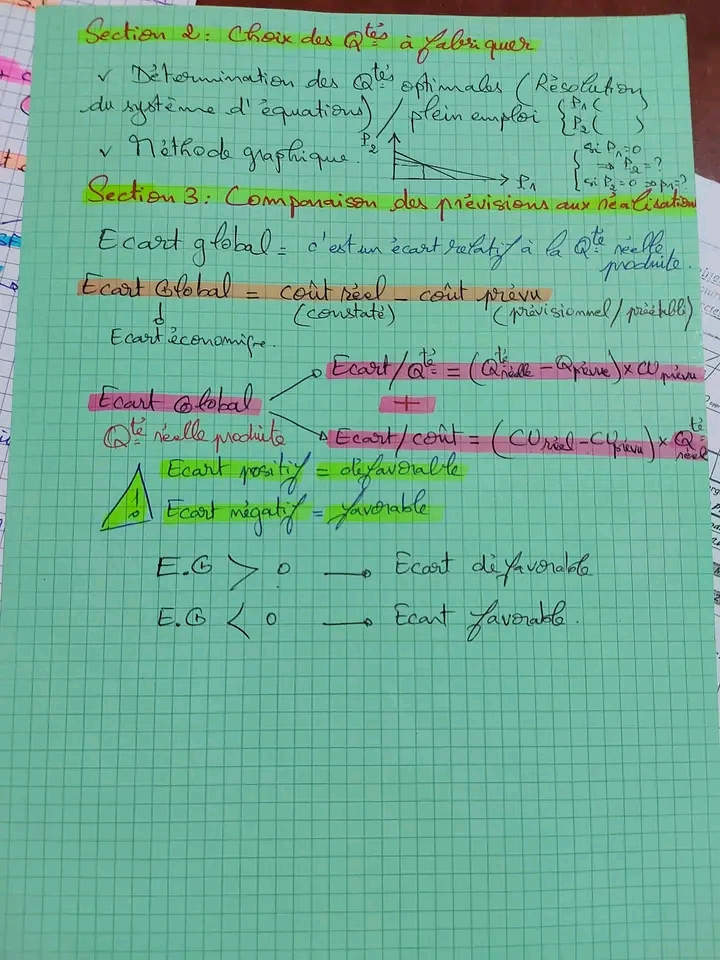 Section 2 : Choix des Qtés à fabriquer
✓ Détermination des Qtés optimales (Résolution
du système d'équations) / plein emploi { P1 (
P2 ( )
✓ Méthode graphique. P2 P1
{ si P1 = 0
⇒ P2 = ?
si P2 = 0 ⇒ P1 = ?
Section 3 : Comparaison des prévisions aux réalisation
Ecart global = c'est un écart relatif à la Qté réelle
produite.
Ecart Global = coût réel - coût prévu
(constaté) (prévisionnel / préétabli)
Ecart économique.
Ecart/Qté = (Qté réelle - Q prévue) × CU prévu
Ecart Global +
Qté réelle produite
Ecart/coût = (CU réel - CU prévu) × Qté réel
Ecart positif = défavorable
! Ecart négatif = favorable
E.G > 0 → Ecart défavorable
E.G < 0 → Ecart favorable.